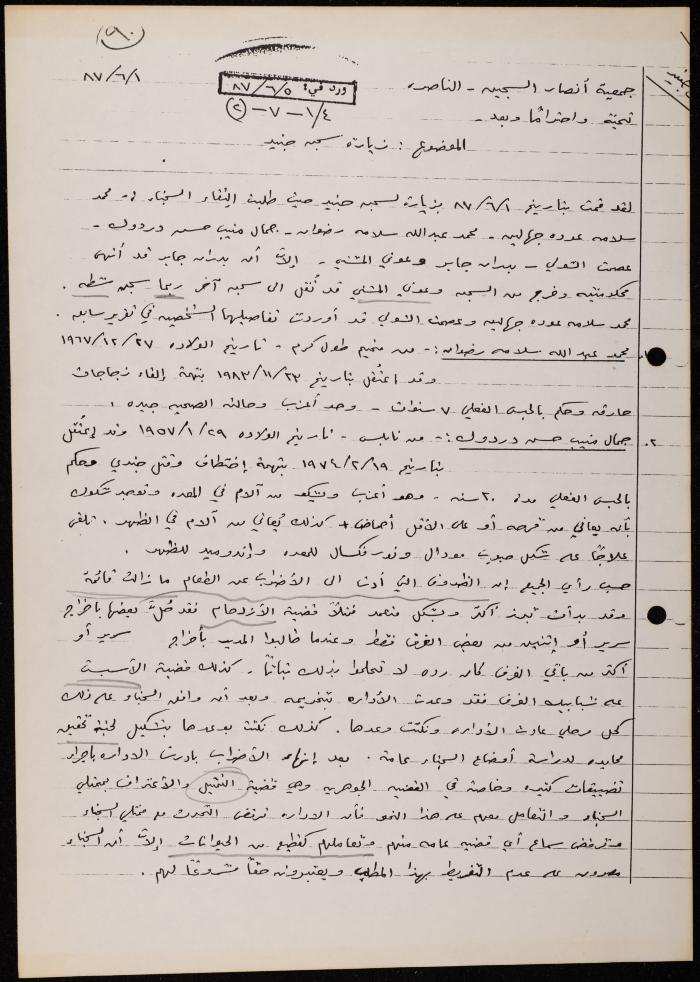 (٩٠)
٨٧/٦/١
ورد في: ٨٧/٦/٥
(٢) - ٧ - ١/٤
جمعية أنصار السجين - الناصره
تحية واحترامًا وبعد -
الموضوع: زيارة سجن جنيد
لقد قمت بتاريخ ٨٧/٦/١ بزيارة لسجن جنيد حيث طلبت التقاء السجناء: محمد
سلامه عوده جهالين - محمد عبد الله سلامه رضوان - جمال منيب حسن دردوك -
عصمت الشولي - بدران جابر وعوني المشني - إلا أن بدران جابر قد أنهى
محكوميته وخرج من السجن وعوني المشني قد نُقل الى سجن آخر ربما سجن شطه.
محمد سلامه عوده جهالين وعصمت الشولي قد أوردت تفاصيلهما الشخصيه في تقرير سابق.
١. محمد عبد الله سلامه رضوان: - من مخيم طول كرم - تاريخ الولاده ١٩٦٧/١٢/٢٧
وقد اعتُقل بتاريخ ١٩٨٣/١١/٢٣ بتهمة إلقاء زجاجات
حارقه وحكم بالحبس الفعلي ٧ سنوات - وهو أعزب وحالته الصحيه جيده.
٢. جمال منيب حسن دردوك: - من نابلس - تاريخ الولاده ١٩٥٧/١/٢٩ وقد إعتُقل
بتاريخ ١٩٧٤/٢/١٩ بتهمة إختطاف وقتل جندي وحكم
بالحبس الفعلي مدة ٢٠ سنه - وهو أعزب ويشكو من آلام في المعده وتوجد شكوك
بأنه يعاني من قرحه أو على الأقل أحماض + كذلك يُعاني من آلام في الظهر. تلقى
علاجًا على شكل حبوب مودال ونورفكسال للمعده وإندوميد للظهر.
حسب رأي الجميع إن الظروف التي أدت الى الأضراب عن الطعام ما زالت قائمة
وقد بدأت تبرز أكثر وبشكل متعمد فمثلاً قضية الأزدحام فقد حُلّ بعضها بأخراج
سرير أو إثنين من بعض الغرف فقط وعندما طالبوا المدير بأخراج سرير أو
أكثر من باقي الغرف كان رده لا تحلموا بذلك بتاتًا. كذلك قضية الأسبست
على شبابيك الغرف فقد وعدت الأداره بتخريمه وبعد أن وافق السجناء على ذلك
كحل مرحلي عادت الأداره ونكثت وعدها. كذلك نكثت بوعدها بتشكيل لجنة تحقيق
محايده لدراسة أوضاع السجناء عامة. بعد إنهاء الأضراب بادرت الاداره بأجراء
تضييقات كثيره وخاصة في القضيه الجوهريه وهي قضية التمثيل والأعتراف بممثلي
السجناء والتعامل معهم على هذا النحو فأن الاداره ترفض التحدث مع ممثلي السجناء
وترفض سماع أي قضيه عامه منهم وتعاملهم كقطيع من الحيوانات إلا أن السجناء
مصرون على عدم التفريط بهذا المطلب ويعتبرونه حقًا مشروعًا لهم.